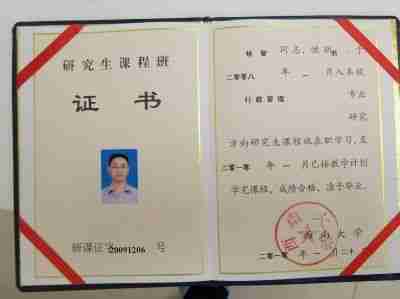 研究生课程班
证书
研课证字20091206号
同志,性别 ,于
二零零八 年 一 月入本校
行政管理 专业
研究
方向研究生课程班在职学习,至
二零一零 年 一 月已按教学计划
学完课程,成绩合格,准予毕业。
大学
二零一零年 一 月二十